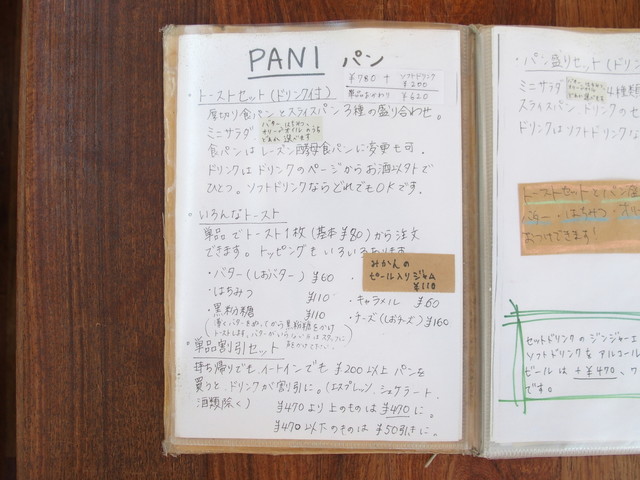 PANI パン
・トーストセット(ドリンク付)
¥780 + ソフトドリンク ¥200
単品おかわり ¥620
厚切り食パンとスライスパン3種の盛り合わせ。
ミニサラダ
食パンはレーズン酵母食パンに変更も可.
ドリンクはドリンクのページからお酒以外で
ひとつ。ソフトドリンクならどれでもOKです.
・いろんなトースト
単品でトースト1枚(基本¥80)から注文
できます。トッピングもいろいろあります
・バター(しおバター) ¥60
・はちみつ ¥110
・黒粉糖 ¥110
みかんの
ピール入りジャム
¥110
・キャラメル ¥60
・チーズ(しおチーズ) ¥160
・単品割引セット
持ち帰りでも、イートインでも ¥200以上パンを
買うと、ドリンクが割引に。(エスプレッソ、シェケラート、
酒類除く) ¥470より上のものは¥470に。
¥470以下のものは ¥50引きに。
・パン盛りセット(ドリン
ミニサラダ 4種類
スライスパン ドリンクのセ
ドリンクはソフトドリンクな
トーストセットとパン盛
バター・はちみつ・オリ
おつけできます!
セットドリンクのジンジャーエ
ソフトドリンクをアルコール
ビールは +¥470、ワ
です。